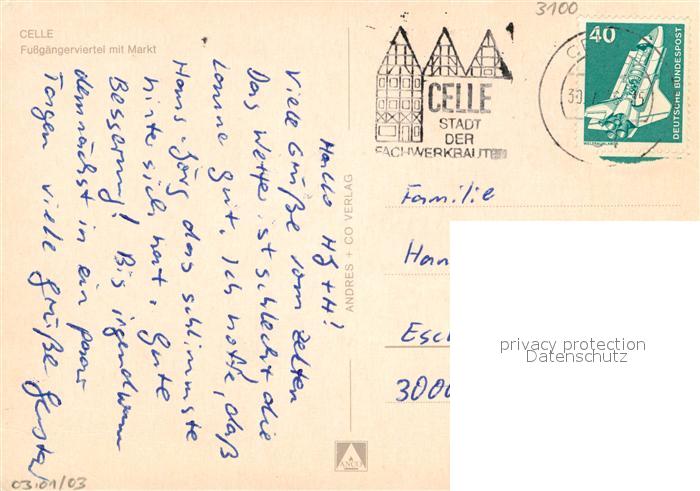 CELLE
Fußgängerviertel mit Markt
Hallo HJ + H!
Viele Grüße vom Zelten
Das Wetter ist schlecht, die
Laune gut. Ich hoffe, daß
Hans-Jörg das schlimmste
hinter sich hat. Gute
Besserung! Bis irgendwann
demnächst in ein paar
Tagen viele Grüße
03.01/03
ANDRES + CO VERLAG
ANCO
3100
CELLE
STADT
DER
FACHWERKBAUTEN
40
DEUTSCHE BUNDESPOST
Familie
Han
Esch
3000
privacy protection
Datenschutz